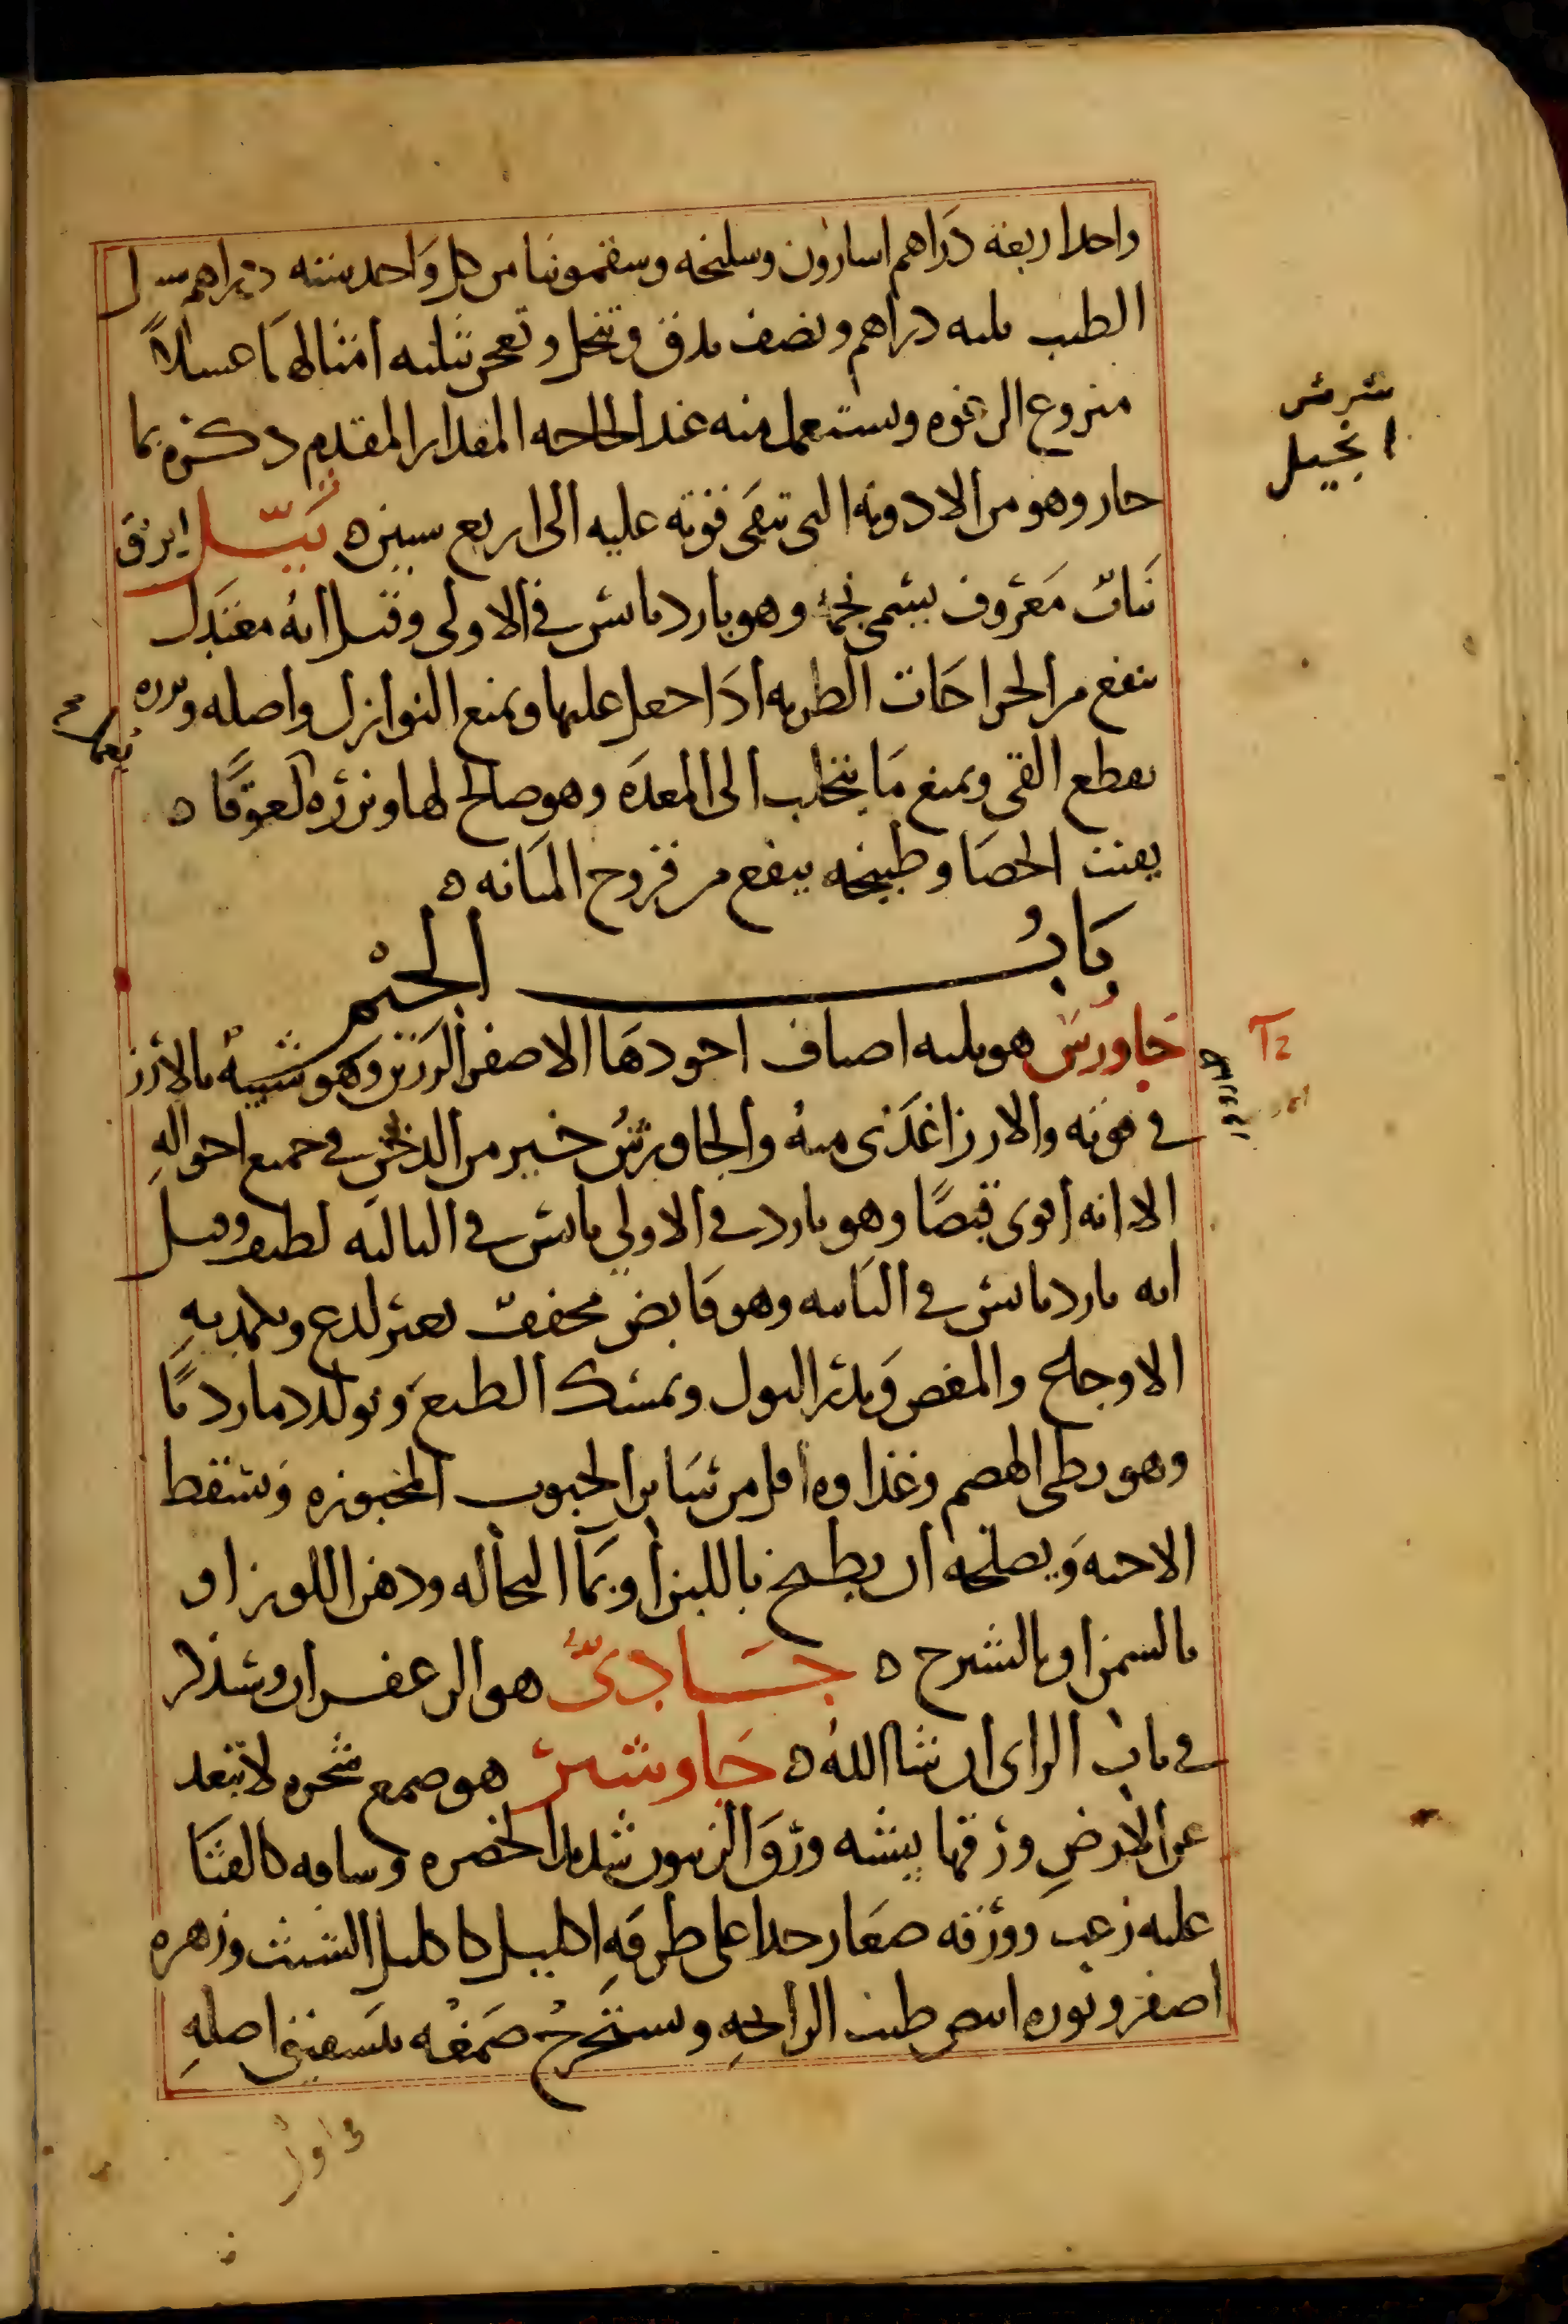 واحد اربعة دراهم اسارون وسليخه وسقمونيا من كل واحد ستة دراهم سنبل
الطيب ثلثه دراهم ونصف يدق وينخل ويعجن بثلثه امثالها عسلاً
منزوع الرغوه ويستعمل منه عند الحاجه المقدار المقدم ذكره بما
حار وهو من الادويه التى تبقى قوته عليه الى اربع سنين ه ثيّل ابرق
نبات معروف يسمى نجما وهو بارد يابس فى الاولى وقيل انه معتدل
ينفع من الجراحات الطريه اذا جعل عليها ويمنع النوازل واصله وبزره
يقطع القى ويمنع ما يتحلب الى المعده وهو صالح لها وبزره لعوقا ه
يفتت الحصا وطبيخه ينفع من قروح المثانه ه
باب الجيم
جاورس هو ثلثه اصناف اجودها الاصفر الرزين وهو شبيه بالارز
فى قوته والارز اغذى منه والجاورس خير من الدخن فى جميع احواله
الا انه اقوى قبضًا وهو بارد فى الاولى يابس فى الثالثه لطيف وقيل
انه بارد يابس فى الثانيه وهو قابض مجفف بغير لذع ويكمد به
الاوجاع والمغص ويدر البول ويمسك الطبع ويولد دما رديًا
وهو بطى الهضم وغذاوه اقل من ساير الحبوب المخبوزه ويسقط
الاجنه ويصلحه ان يطبخ باللبن او بما النخاله ودهن اللوز او
بالسمن او بالشيرج ه جسادىّ هو الزعفران وسنذكر
فى باب الزاى ان شا الله ه جاوشير هو صمغ شجره لا تبعد
عن الارض ورقها يشبه ورق الزيتون شديد الخضره وساقه كالقثا
عليه زغب وورقه صغار جدا على طرفه اكليل كاكليل الشبث وزهره
اصفر وبزره ابيض طيب الرايحه ويستخرج صمغه بتشقيق اصله
شرش
انجيل
جاورس